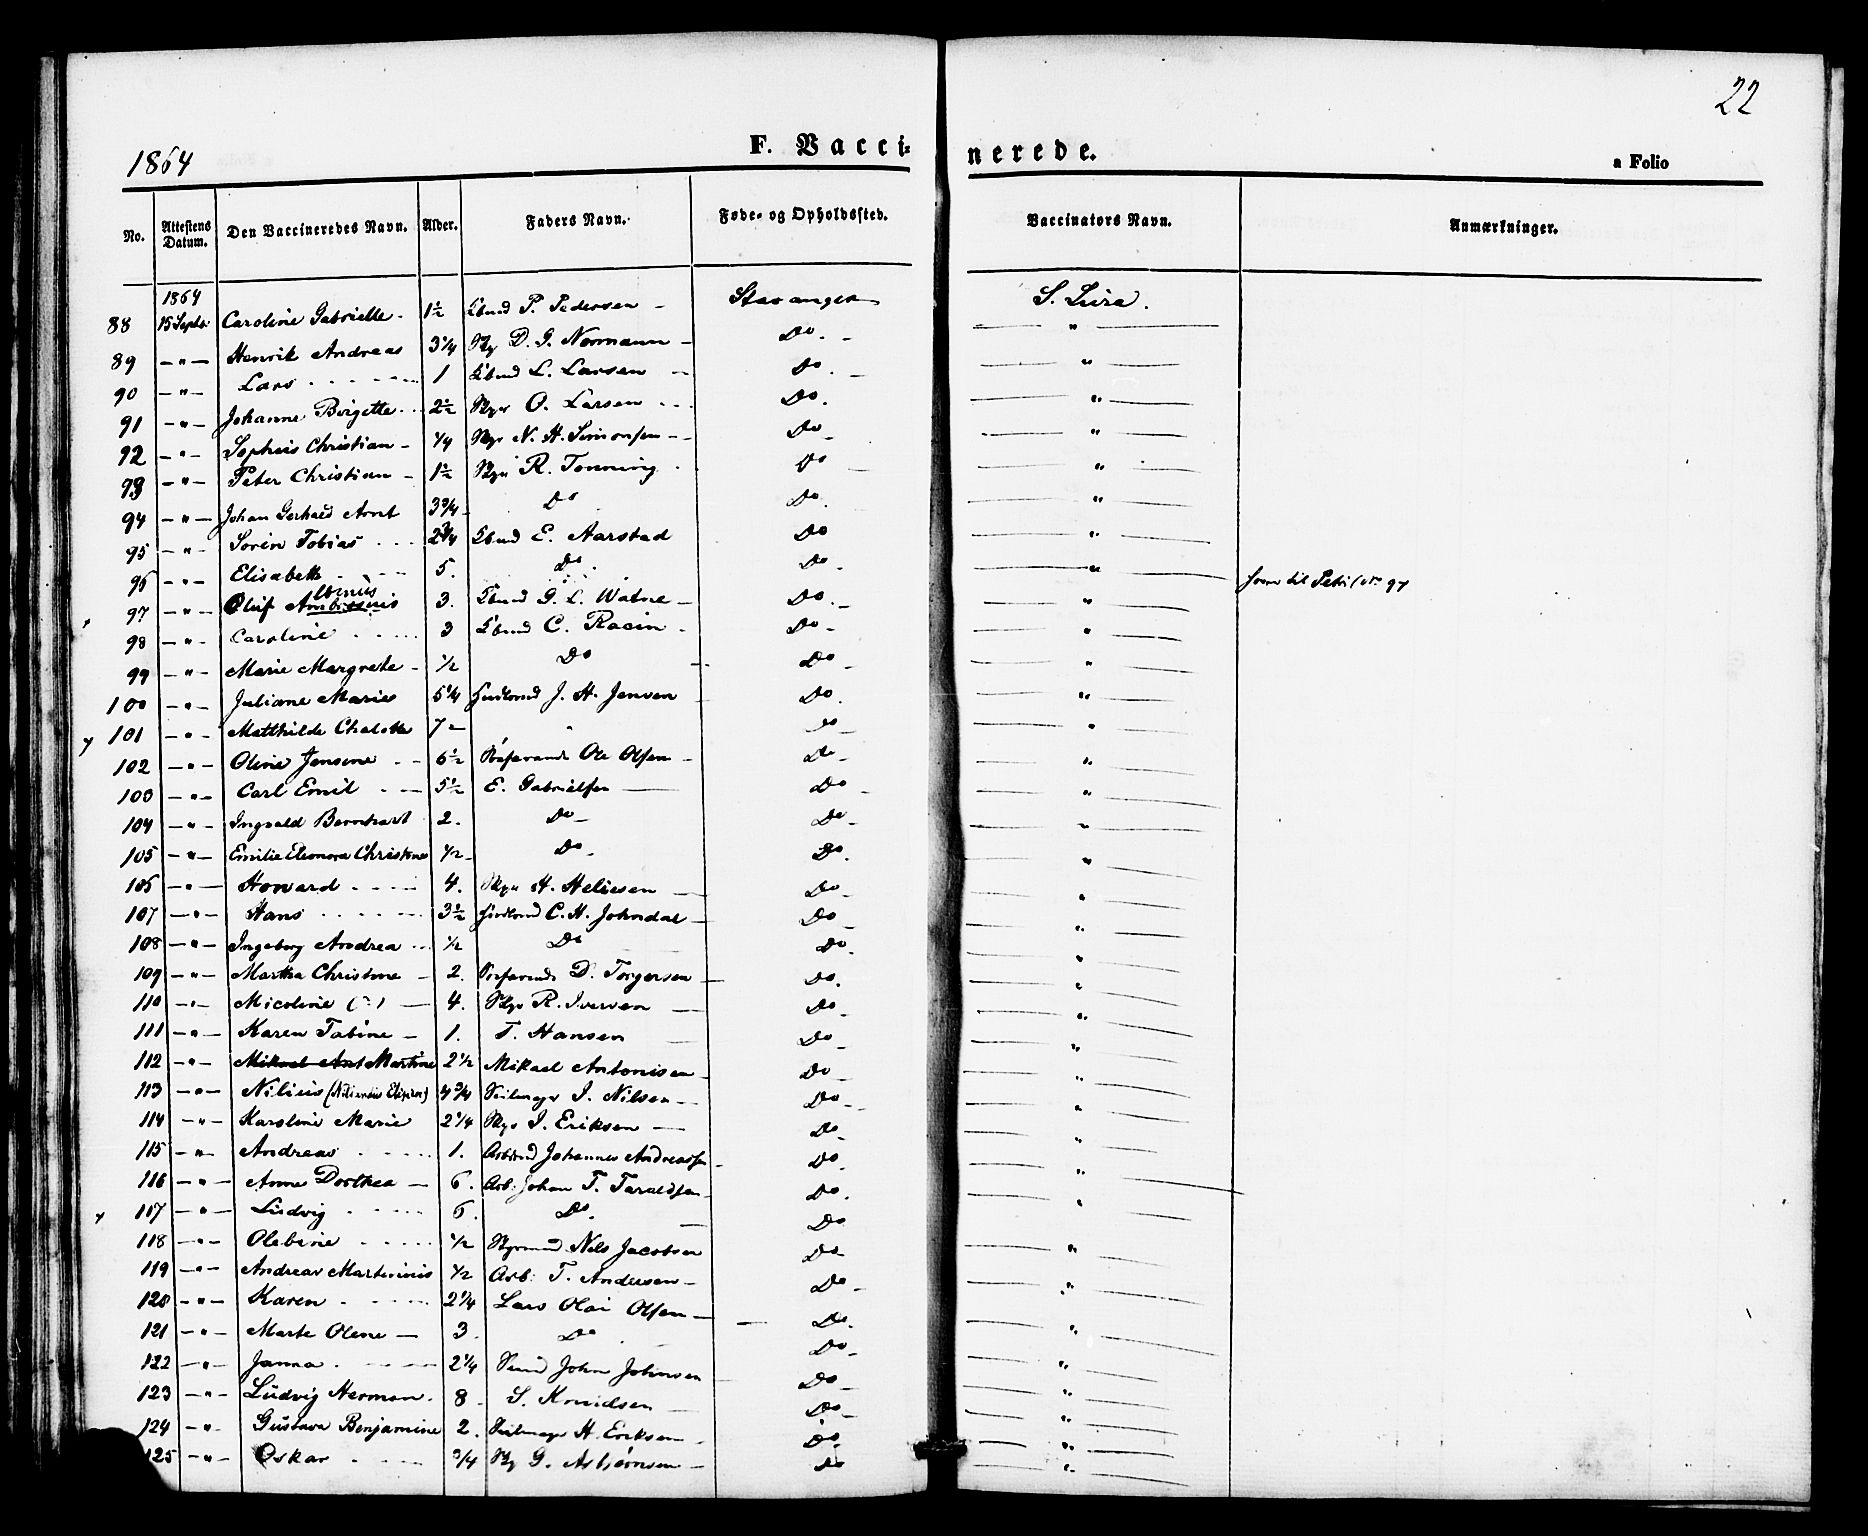 22
1864
F. Vacci-
nerede.
a Folio
No. Attestens Datum. Den Vaccineredes Navn. Alder. Faders Navn. Føde- og Opholdssted. Vaccinators Navn. Anmærkninger.
1864
88 15 Septbr Caroline Gabrielle 1½ P. Pedersen Stavanger S. Lura.
89 — " — Henrik Andreas 3¼ D. G. Normann Do. "
90 — " — Lars 1 L. Larsen Do. "
91 — " — Johanne Birgette 2½ O. Larsen Do. "
92 — " — Sophus Christian ¼ N. H. Simonsen Do "
93 — " — Peter Christian 1½ R. Tonning Do "
94 — " — Johan Gerhard Arnt 3¾ Do Do. "
95 — " — Sørin Tobias 2¾ E. Aarstad Do "
96 — " — Elisabeth 5. Do. Do. "
97 — " — Oluf 3. G. L. Watne Do. " No 97
98 — " — Caroline 3 C. Racin Do "
99 — " — Marie Margrete ½ Do Do "
100 — " — Juliane Marie 5¼ J. H. Jensen Do. "
101 — " — Matthilde Chalotte 7 " Do "
102 — " — Oline Jensine 6½ Ole Olsen Do "
103 — " — Carl Emil 5½ E. Gabrielsen Do "
104 — " — Ingvald Bernhart 2. Do Do "
105 — " — Emilie Eleonora Christine ½ Do Do. "
106 — " — Howard 4. H. Heliesen Do "
107 — " — Hans 3½ C. H. Johndal Do "
108 — " — Ingeborg Andrea ½ Do Do. "
109 — " — Martha Christine 2. D. Torgersen Do. "
110 — " — Micoline 4. R. Iversen Do "
111 — " — Karen Tabine 1. T. Hansen Do "
112 — " — Mikael Ant Martine 2½ Mikael Antonisen Do "
113 — " — Nilius 4¾ I. Nilsen Do "
114 — " — Karoline Marie 2¼ I. Eriksen Do "
115 — " — Andreas 1. Johannes Andreassen Do. "
116 — " — Anne Dorthea 6. Arb: Johan T. Taraldsen Do. "
117 — " — Ludvig 6. Do. Do "
118 — " — Olebine ½ Styrmand Nils Jacobsen Do "
119 — " — Andreas Martinius ½ Arb: T. Andersen Do "
120 — " — Karen 2¼ Lars Olai Olsen Do. "
121 — " — Marte Olene 3. Do Do "
122 — " — Janna 2¼ John Johnsen Do "
123 — " — Ludvig Herman 8 S. Knudsen Do "
124 — " — Gustava Benjamine 2. H. Eriksen Do. "
125 — " — Oskar ¾ G. Asbjørnsen Do "